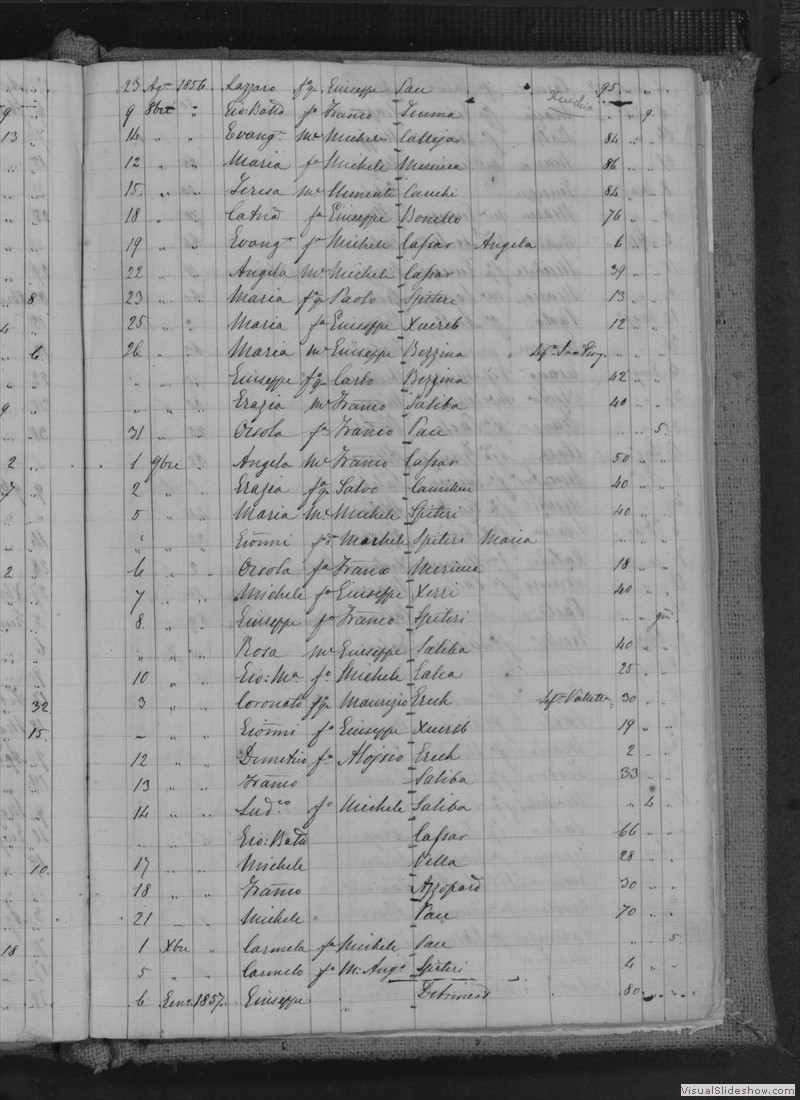 23 Agto 1856 Lazzaro fo Giuseppe Pace 95 " "
9 8bre " Gio: Batta fo Franco Temma " " 9
13 14 " " Evanga Me Michele Calleja 84 " "
12 " " Maria fa Michele Micieca 86 " "
15 " " Teresa Me Clemente Cauchi 84 " "
18 " " Catna fa Giuseppe Bonello 76 " "
19 " " Evanga fa Michele Cassar Angela 6 " "
22 " " Angela Me Michele Cassar 39 " "
8 23 " " Maria fa Paolo Spiteri 13 " "
4 25 " " Maria fa Giuseppe Xuereb 12 " "
6 26 " " Maria Me Giuseppe Bezzina " " "
" " " Giuseppe fo Carlo Bezzina 42 " "
9 " " " Grazia Me Franco Saliba 40 " "
31 " " Orsola fa Franco Pace " " 5
2 1 9bre " Angela Me Franco Cassar 50 " "
2 " " Grazia fa Salvo Camilleri 40 " "
5 " " Maria Me Michele Spiteri 40 " "
" " " Gionni fo Michele Spiteri Maria " " "
2 6 " " Orsola fa Franco Micieca 18 " "
7 " " Michele fo Giuseppe Xerri 40 " "
8 " " Giuseppe fo Franco Spiteri " "
" " " Rosa Me Giuseppe Saliba 40 " "
10 " " Gio: Ma fo Michele Galea 25 " "
32 3 " " Coronato fo Maurizio Grech Valletta 30 "
15 " " Gionni fo Giuseppe Xuereb 19 " "
12 " " Dimitrio fo Aloysio Grech 2 " "
13 " " Franco Saliba 33 " "
14 " " Ludco fo Michele Saliba " 4 "
" " " Gio: Batta Cassar 66 " "
10 17 " " Michele Vella 28 " "
18 " " Franco Azzopardi 30 " "
21 " Michele Pace 70 " "
18 1 Xbre " Carmela fa Michele Pace " " 5
5 " " Carmelo fo M: Anglo Spiteri 4 " "
6 Genro 1857 Giuseppe " 80 " "
VisualSlideshow.com